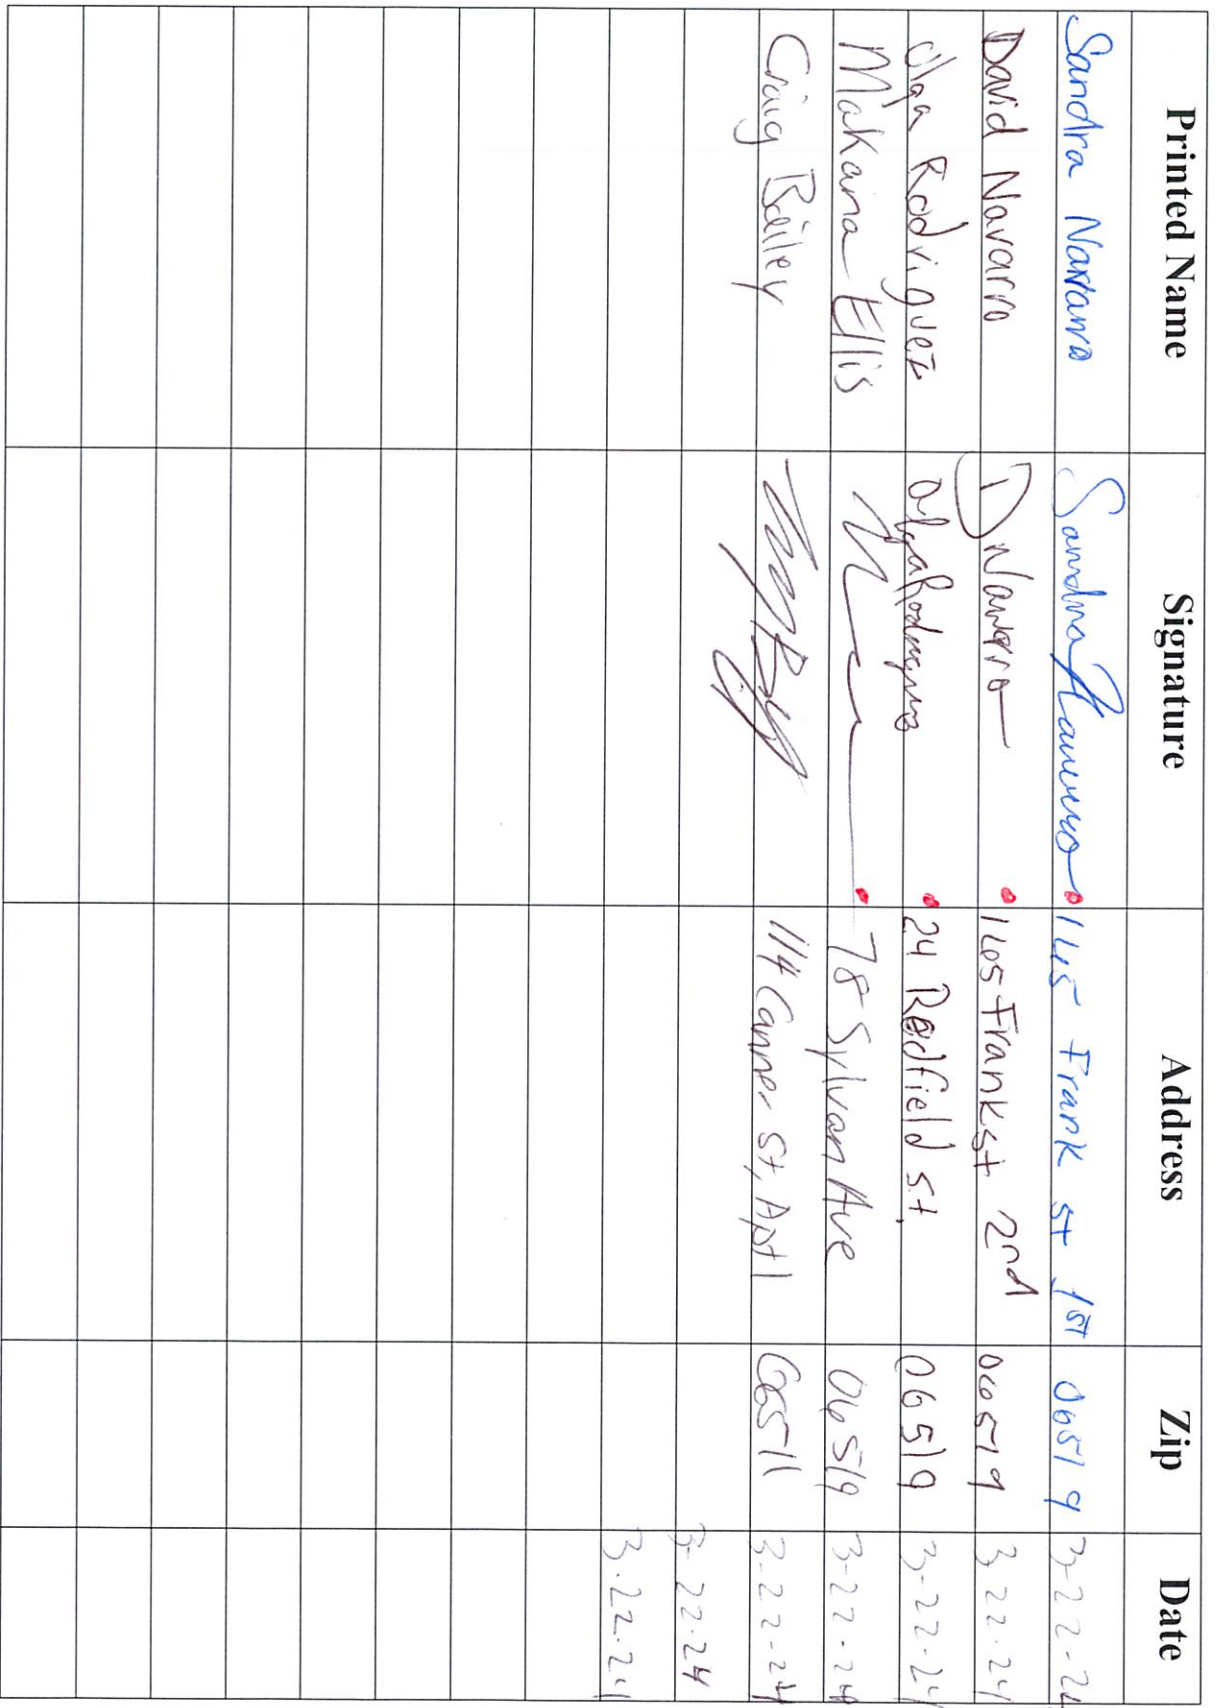 Printed Name Signature Address Zip Date
Sandra Navarro Sandra Navarro 165 Frank st 1st 06519 3-22-24
David Navarro D Navarro 165 Frank st 2nd 06519 3 22-24
Olga Rodriguez Olga Rodriguez 24 Redfield st. 06519 3-22-24
Makana Ellis 78 Sylvan Ave 06519 3-22-24
Craig Bailey 114 Canner St, Apt 1 06511 3-22-24
3-22-24
3.22.24